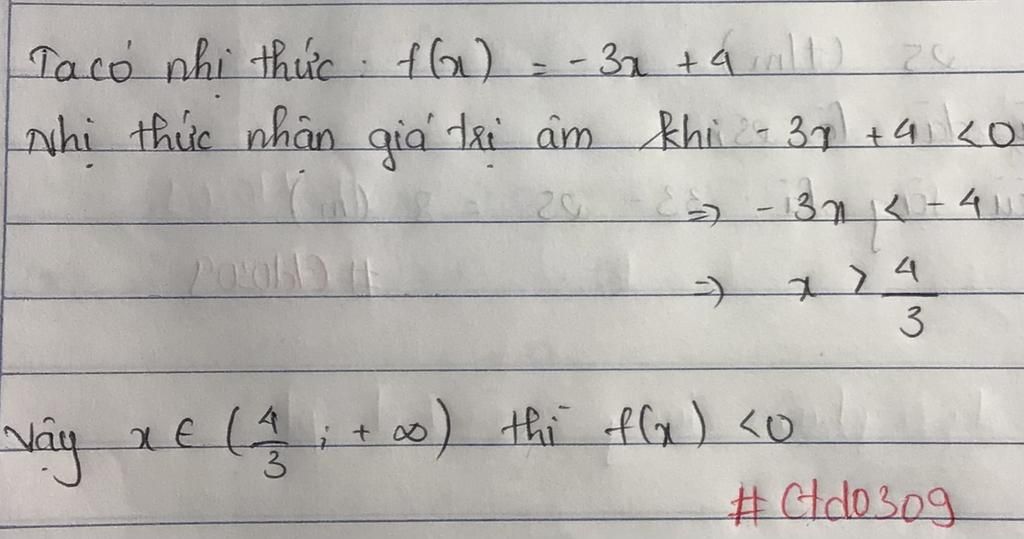 Ta có nhị thức: f(x) = -3x + 4
Nhị thức nhận giá trị âm khi -3x + 4 < 0
=> -3x < -4
=> x > 4/3
Vậy x ∈ (4/3; +∞) thì f(x) < 0
#Ctd0309